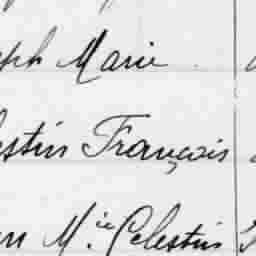 eph Marie
estin François
M.ie Celestin